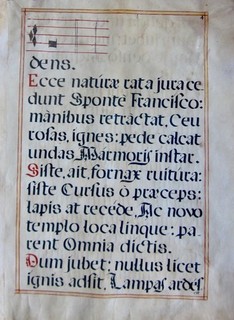 dens.
Ecce naturæ rata jura ce
dunt Sponte Francisco:
manibus retractat, Ceu
rosas, ignes: pede calcat
undas Marmoris instar.
Siste, ait, fornax ruitura:
siste Cursus ô præceps:
lapis at recede, Ac novo
templo loca linque: pa:
rent Omnia dictis.
Dum jubet: nullus licet
ignis adsit, Lampas ardes